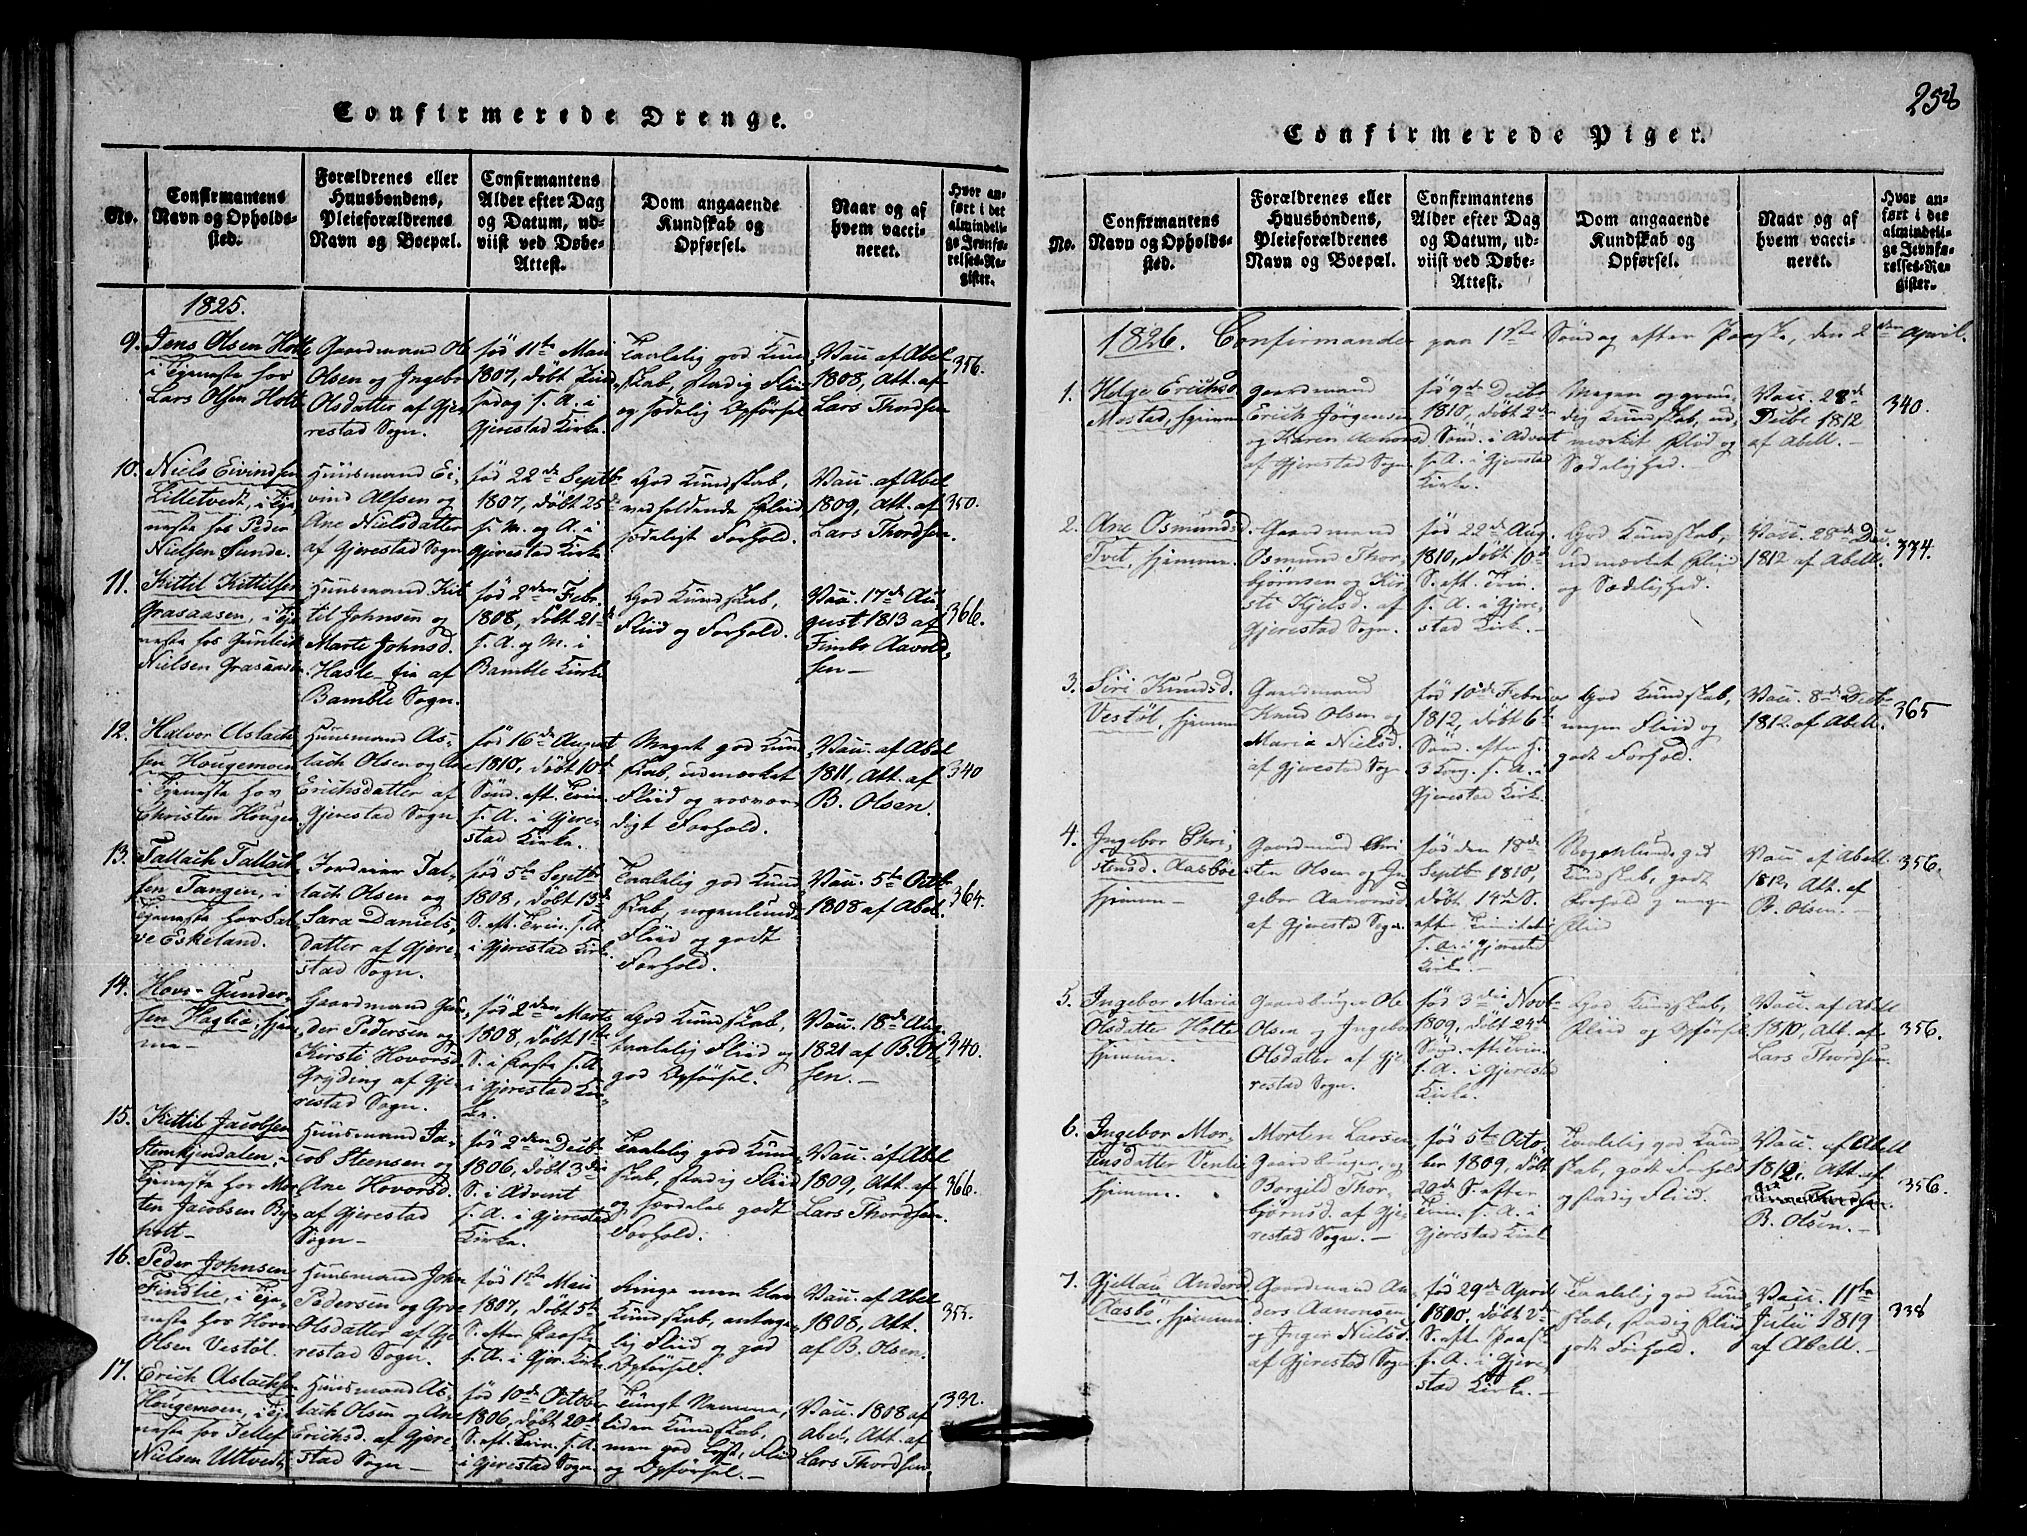 Confirmerede Drenge.
No.
Confirmantens
Navn og Opholds-
sted.
Forældrenes eller
Huusbondens,
Pleieforældrenes
Navn og Boepæl.
Confirmantens
Alder efter Dag
og Datum, ud-
viist ved Døbe-
Attest.
Dom angaaende
Kundskab og
Opførsel.
Naar og af
hvem vacci-
neret.
Hvor an-
ført i det
almindeli-
ge Jevnfø-
relses-Re-
gister.
1825.
9.
Jens Olsen Holte
i Tjeneste hos
Lars Olsen Holte
Gaardmand Ole
Olsen og Ingebor
Olsdatter af Gje-
restad Sogn.
fød 11te Maii
1807, døbt
f. A. i
Gjerestad Kirke.
Taalelig god Kund-
skab, stadig Fliid
og sædelig Opførsel
Vacc. af Abel
1808, Att. af
Lars Thordsen
356.
10.
Niels Eivindsen
Lilletvedt, i Tje-
neste hos Peder
Nielsen Sunde.
Huusmand Ei-
vind Alfsen og
Ane Nielsdatter
af Gjerestad Sogn
fød 22de Septb.
1807, døbt 25de
s. M. og A. i
Gjerestad Kirke
God Kundskab,
vedholdende Fliid
sædeligt Forhold.
Vacc. af Abel
1809, Att. af
Lars Thordsen.
350.
11.
Kittil Kittilsen
Grasaasen, i Tje-
neste hos Gunleik
Nielsen Grasaasen
Huusmand Kit-
til Johnsen og
Marte Johnsd.
Hasle- fra af
Bamble Sogn.
fød 2den Febr.
1808, døbt 21de
s. A. og M. i
Bamble Kirke
God Kundskab,
Fliid og Forhold.
Vacc. 17de Au-
gust 1813 af
Fimbo Aavold-
sen-
366.
12.
Halvor Aslach-
sen Hougemoen
i Tjeneste hos
Christen Hougen
Huusmand As-
lach Olsen og Ane
Erichsdatter af
Gjerestad Sogn
fød 16de August
1810, døbt 10de
Sønd. eft. Trin.
s. A. i Gjere-
stad Kirke.
Meget god Kund-
skab, udmærket
Fliid og rosvær-
digt Forhold.
Vacc. af Abel
1811, Att. af
B. Olsen.
340
13.
Tallach Tallach-
sen Tangen, i
Tjeneste hos Sal-
ve Eskeland.
Jordeier Tal-
lach Olsen og
Sara Daniels-
datter af Gjere-
stad Sogn.
fød 5te Septb.
1808, døbt 13de
S. eft. Trin. s. A.
i Gjerestad Kirke.
Taalelig god Kund-
skab, nogenlunde
Fliid og godt
Forhold.
Vacc. 5te Octb.
1808 af Abel.
364.
14.
Hovs Gunder-
sen Haglia, hjem-
me-
Gaardmand Gun-
der Pedersen og
Kirsti Hovorsd.
Gryding af Gje-
restad Sogn.
fød 2den Marts
1808, døbt 1ste
S. i Faste s. A.
i Gjerestad Kir-
ke.
God Kundskab,
taalelig Fliid og
god Opførsel.
Vacc. 18de Aug.
1821 af B. Ol-
sen.-
340.
15.
Kittil Jacobsen
i
Tjeneste hos Mor-
ten Jacobsen By-
holt-
Huusmand Ja-
cob Steensen og
Ane Hovorsd.
af Gjerestad
Sogn-
fød 2den Decb.
1806, døbt 3die
S. i Advent
s. A. i Gjerestad
Kirke.
Taalelig god Kund-
skab, stadig Fliid
og særdeles godt
Forhold.
Vacc. af Abel
1809, Att. af
Lars Thordsen.
366.
16.
Peder Johnsen
Findlie, i Tje-
neste hos Hovor
Olsen Vestøl.
Huusmand John
Pedersen og Groe
Olsdatter af Gje-
restad Sogn.
fød 1ste Maii
1807, døbt 5te
S. efter Paaske
s. A. i Gjer. Kirke
Ringe men klar
Kundskab, antage-
lig Fliid og god
Opførsel.
Vacc. af Abel
1808, Att.
af B. Olsen.
355.
17.
Erich Aslachsen
Hougemoen, i Tje-
neste hos Tellef
Nielsen Ultvedt
Huusmand As-
lach Olsen og Ane
Erichsd. af Gjere-
stad Sogn-
fød 10de Octobr.
1806, døbt 20de
S. eft. Trin. s. A.
i Gjerestad Sogn
Tungt Nemme,
liden Kundskab,
men god Lyst, Fliid
og Opførsel.-
Vacc. 1808 af
Abel, Att. af
Lars Thordsen.
332.
258
Confirmerede Piger.
No.
Confirmantens
Navn og Opholds-
sted.
Forældrenes eller
Huusbondens,
Pleieforældrenes
Navn og Boepæl.
Confirmantens
Alder efter Dag
og Datum, ud-
viist ved Døbe-
Attest.
Dom angaaende
Kundskab og
Opførsel.
Naar og af
hvem vacci-
neret.
Hvor an-
ført i det
almindeli-
ge Jevnfø-
relses-Re-
gister.
1826. Confirmander paa 1ste Søndag efter Paaske, den 2den April.
1.
Helge Erichsd.
Mostad, hjemme
Gaardmand
Erich Jørgensen
og Karen Aanonsd.
af Gjerestad Sogn.
fød 9de Decbr.
1810, døbt 2den
Sønd. i Advent
s. A. i Gjerestad
Kirke.
Megen og grun-
dig Kundskab, ud-
mærket Fliid og
Sædelighed.-
Vacc. 28de
Decbr. 1812
af Abell.-
340.
2.
Ane Osmundsd.
Tvet, hjemme.
Gaardmand
Osmund Thor-
bjørnsen og Kir-
sti Kjelsd. af
Gjerestad Sogn.
fød 22de Aug.
1810, døbt 10de
S. eft. Trin.
s. A. i Gjere-
stad Kirke.-
God Kundskab,
udmærket Fliid
og Sædelighed.
Vacc. 28de Dec.
1812 af Abell.
334.
3.
Siri Knudsd.
Vestøl, hjemme
Gaardmand
Knud Olsen og
Maria Nielsd.
af Gjerestad Sogn.
fød 10de Februar
1812, døbt 6te
Sønd. efter H.
3 Kong. s. A. i
Gjerestad Kirke.
God Kundskab,
megen Fliid og
godt Forhold.
Vacc. 8de Decbr.
1812 af Abell.
365
4.
Ingebor Chri-
stensd. Aasbøe
hjemme-
Gaardmand Chri-
sten Olsen og In-
gebor Aanonsd.
af Gjerestad Sogn.
fød den 18de
Septb. 1810,
døbt 14de S.
efter Trinitatis
s. A. i Gjerestad
Kirke.-
Nogenlunde god
Kundskab, godt
Forhold og megen
Fliid
Vacc. af Abell.
1812, Att. af
B. Olsen.-
356.
5.
Ingebor Maria
Olsdatter Holte
hjemme.
Gaardbruger Ole
Olsen og Ingebor
Olsdatter af Gje-
restad Sogn.
fød 3die Novb.
1809, døbt 24de
Sønd. eft. Trin.
s. A. i Gjerestad
Kirke.
God Kundskab,
Fliid og Opførsel
Vacc. af Abell
1810, Att. af
Lars Thordsen.
356.
6.
Ingebor Mor-
tensdatter Ventlie
hjemme.
Morten Larsen
Gaardbruger, og
Borgild Thor-
bjørnsd. af Gje-
restad Sogn.-
fød 5te Octo-
ber 1809, døbt
20de S. efter
Trin. s. A. i
Gjerestad Kirke
Taalelig god Kund-
skab, godt Forhold
og stadig Fliid.
Vacc. af Abell
1812. Att. af
B. Olsen.-
356.
7.
Gjellau Andersd.
Aasbø, hjemme
Gaardmand An-
ders Aanonsen
og Inger Nielsd.
af Gjerestad Sogn
fød 29de April
1810. døbt 2de
S. eft. Paaske
s. A. i Gjere-
stad Kirke.-
Taalelig god Kund-
skab, stadig Fliid
godt Forhold.
Vacc. 11te
Julii 1819
af Abell.-
338